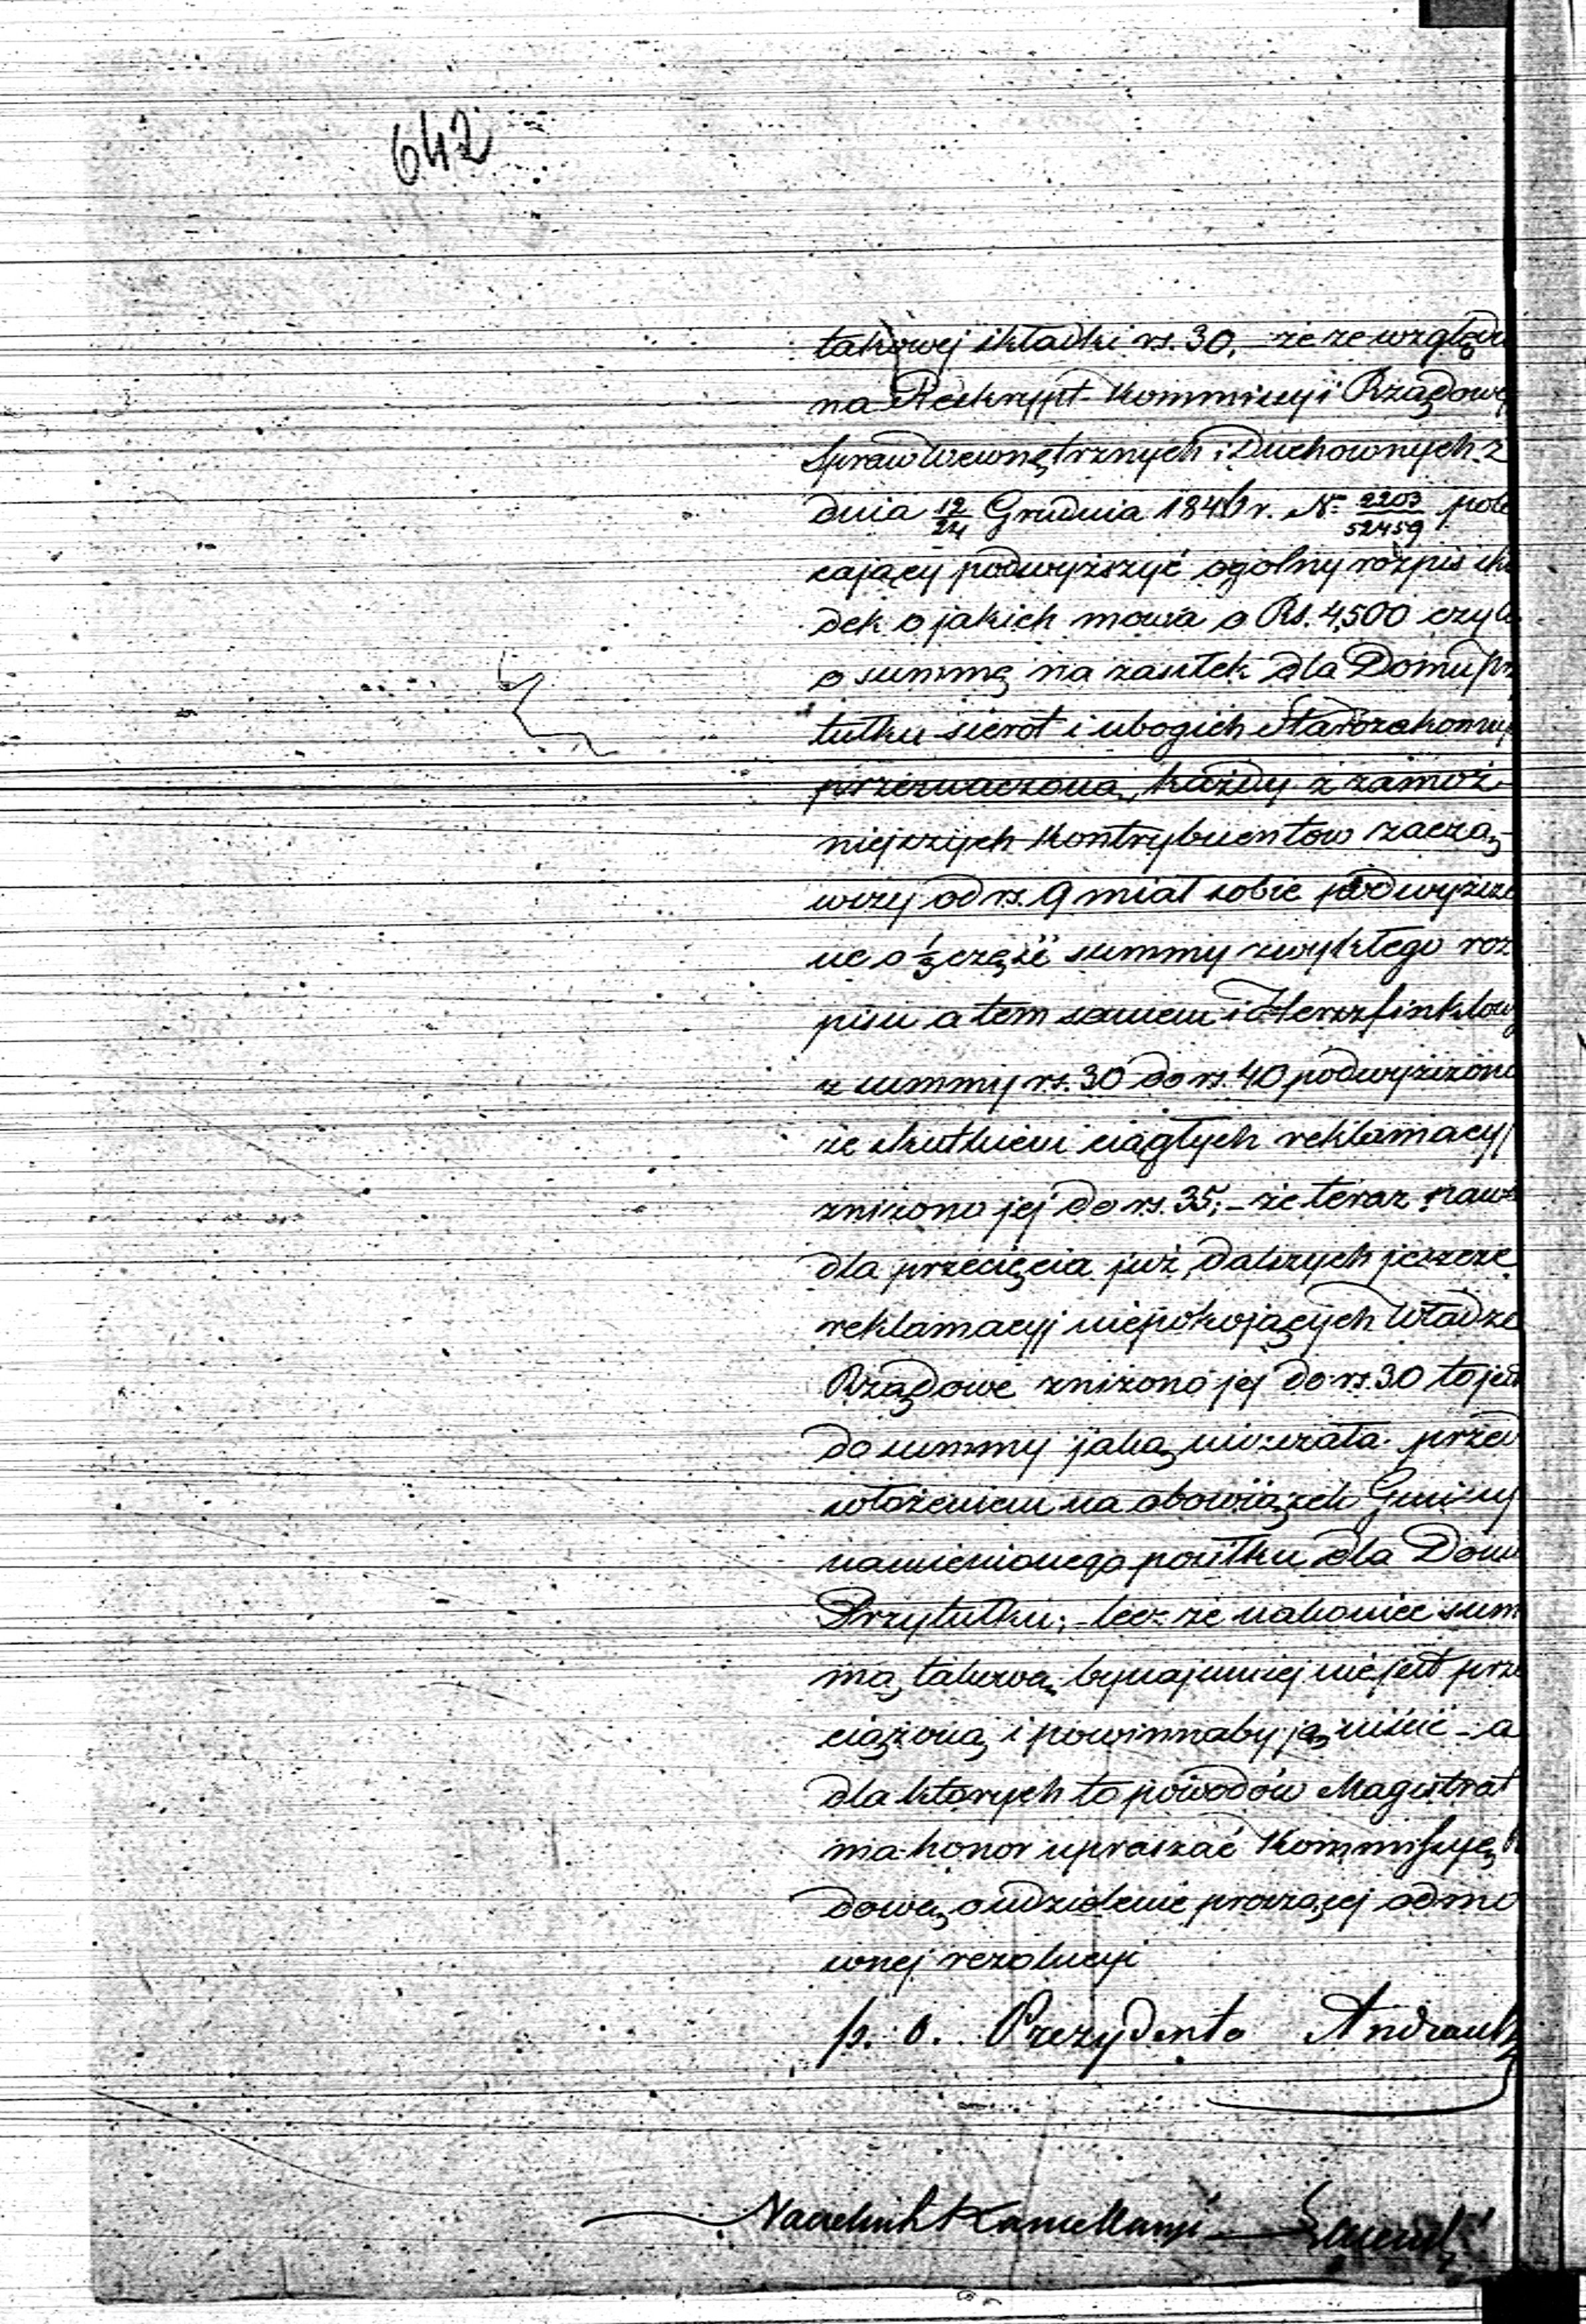 642
takowej składki rs. 30, – że ze względu
na Reskrypt Kommissyi Rządowej
Spraw Wewnętrznych i Duchownych z
dnia 12/24 Grudnia 1846 r. No 2203/52459 pole
cający podwyższyć ogólny rozpis skła
dek o jakich mowa o Rs. 4,500 czyli
o summę na zasiłek dla Domu przy
tułku sierot i ubogich Starozakonnych
przeznaczoną, każdy z zamoż-
niejszych Kontrybuentów zacząw-
wszy od rs. 9 miał sobie podwyższo
ne o ⅓ część summy zwykłego roz
pisu a tem samem i Herszfinklowej
z summy rs. 30 do rs. 40 podwyższono
że skutkiem ciągłych reklamacyj
zniżono jej do rs. 35; – że teraz nawet
dla przecięcia już dalszych jeszcze
reklamacyj niepokojących Władze
Rządowe zniżono jej do rs. 30 to jest
do summy jaką uiszczała przed
włożeniem na obowiązek Gminy
namienionego posiłku dla Domu
Przytułku; – lecz że nakoniec sum
mą takową bynajmniej nie jest prze
ciążoną i powinnaby ją uiścić – a
dla których to powodów Magistrat
ma honor upraszać Kommissyę Rzą
dową o udzielenie proszącej odmo
wnej rezolucyi
p. o. Prezydenta Andrault
Naczelnik Kancellaryi